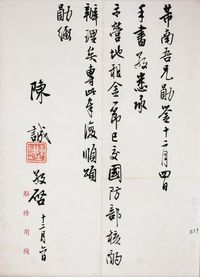 芾南吾兄勛鑒十二月四日
手書敬悉承
示營地租金一節已交國防部核酌
辦理矣專此奉復順頌
勛綏
陳誠敬啓
十二月日
辭修用牋